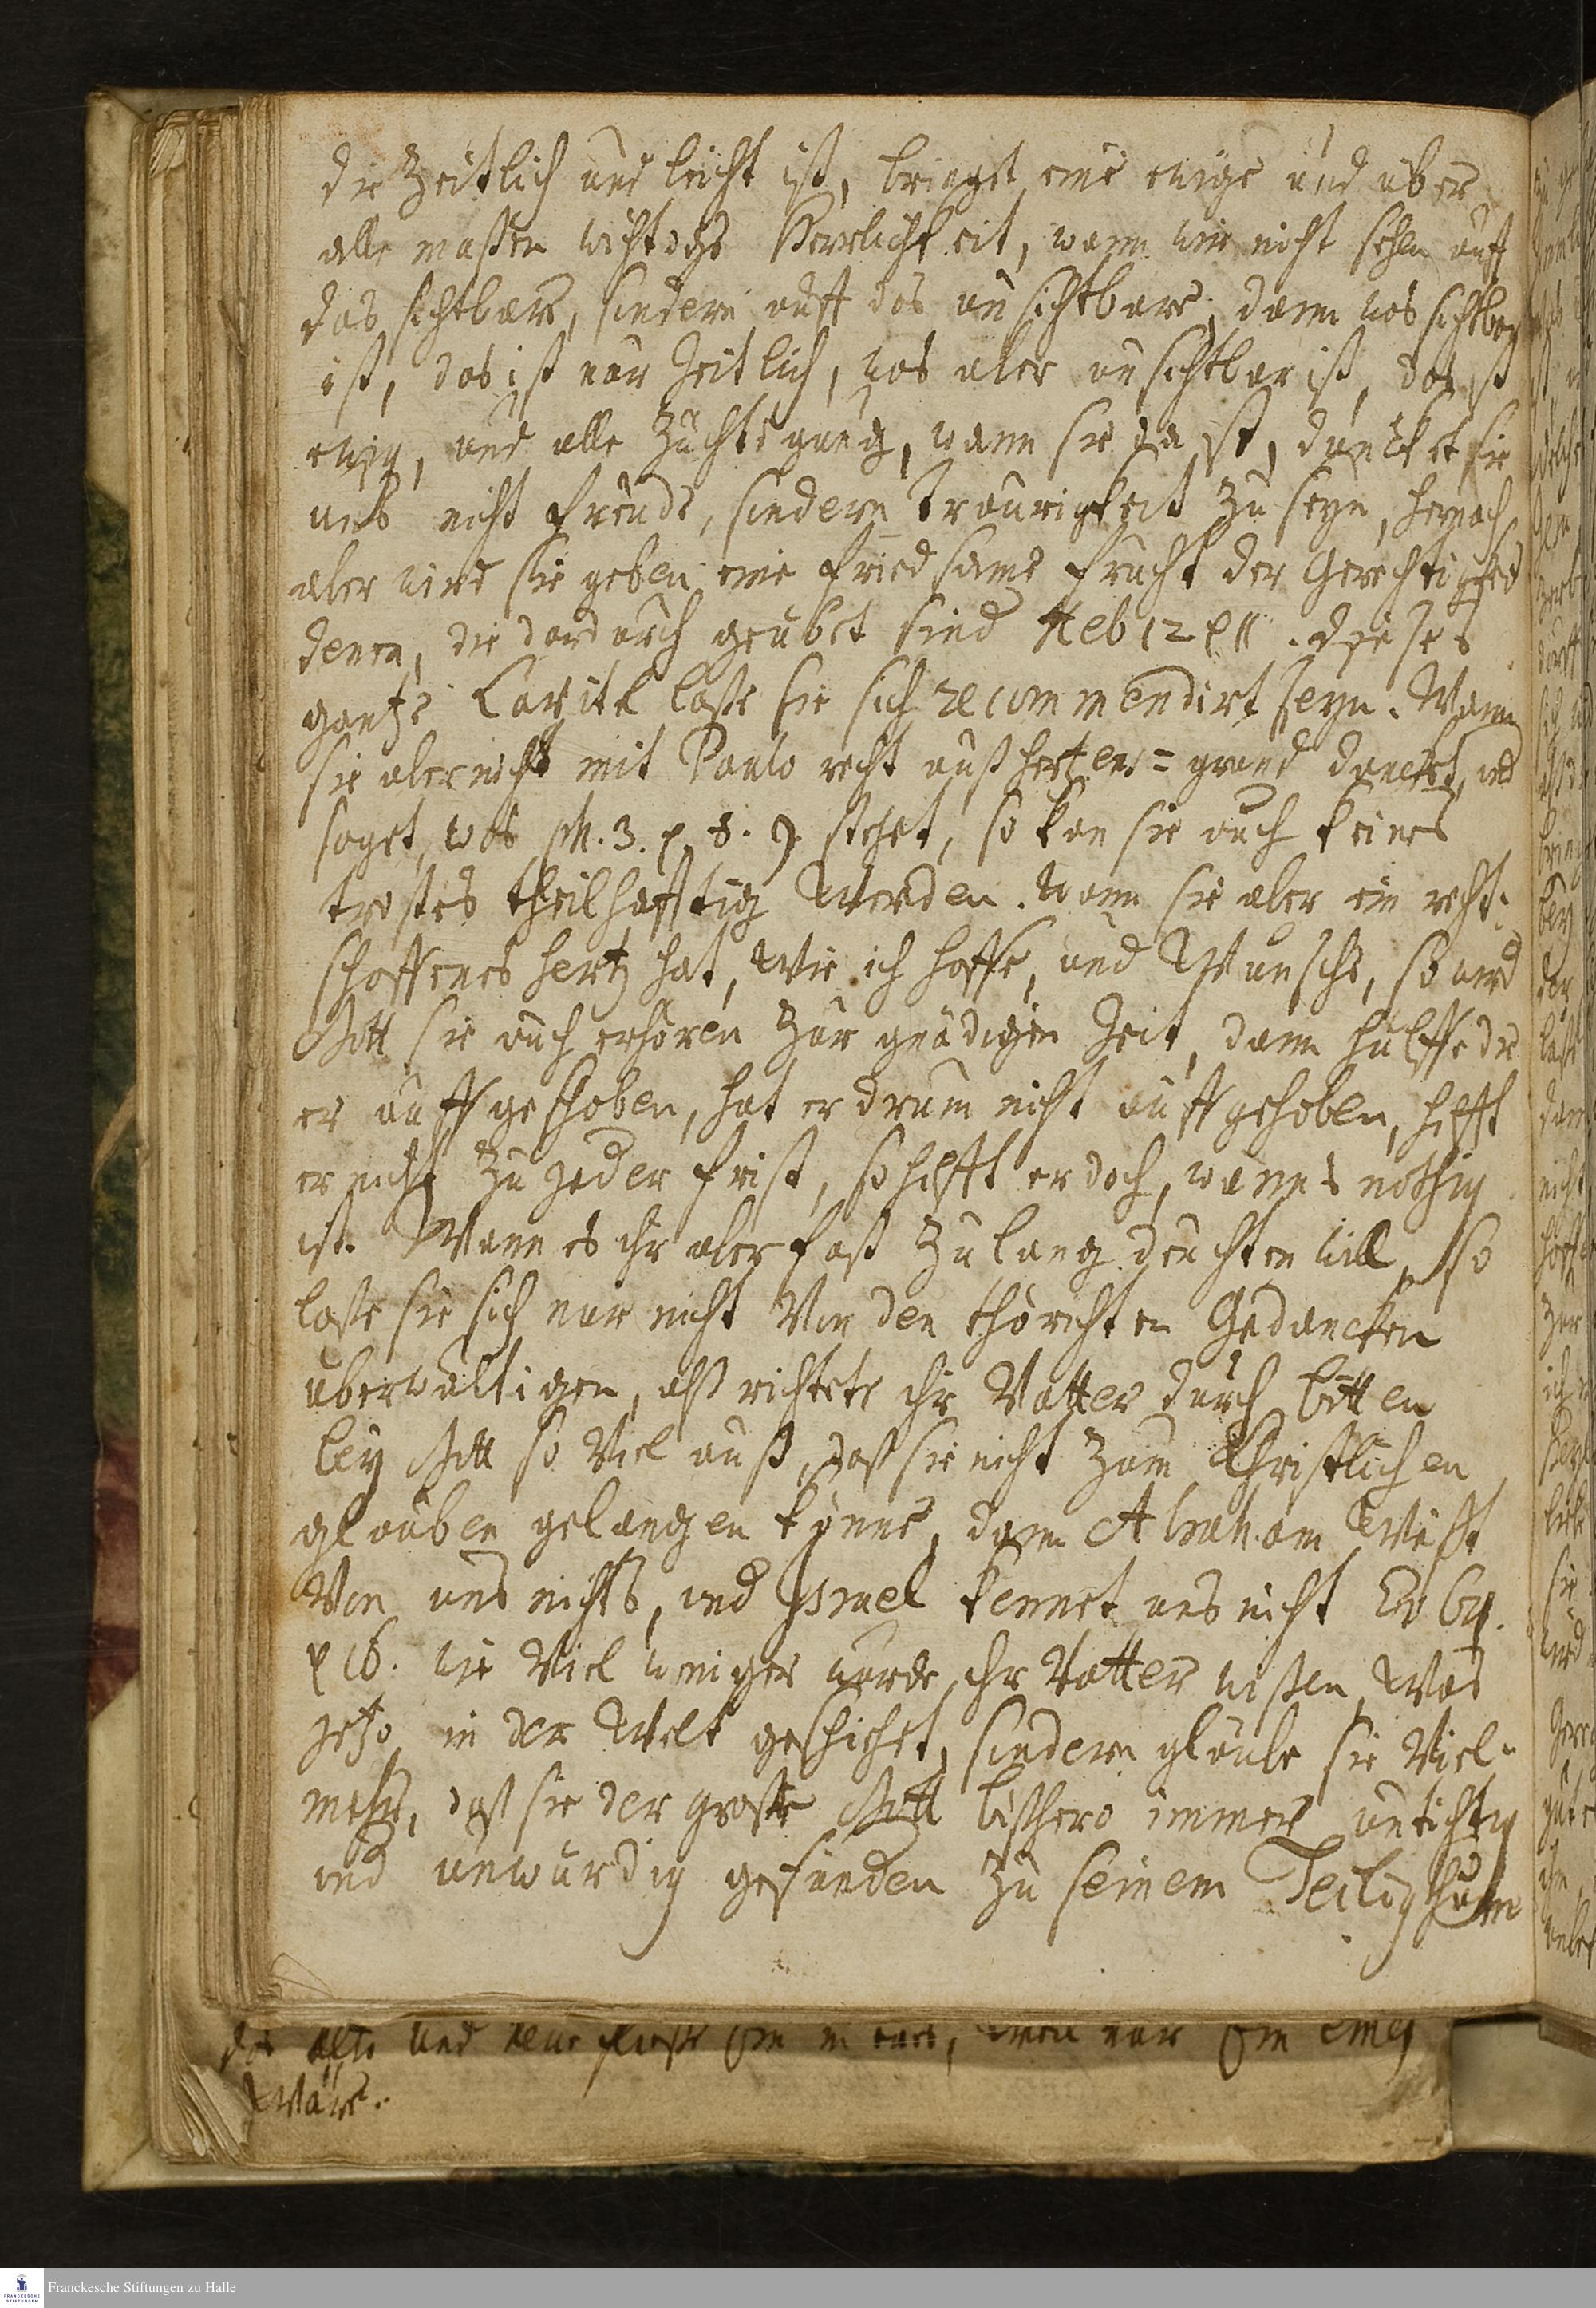 die Zeitlich und leicht ist, bringet eine ewige und uber
alle maßen wichtige Herrlichkeit, wann wir nicht sehen auff
das sichtbare, sundern auff das unsichtbare, dann was sichtbar
ist, das ist nur Zeitlich, was aber unsichtbar ist, das ist
ewig, und alle Züchtigung, wann sie da ist, düncket sie
uns nicht freude, sundern Traurigkeit zu seyn, hernach
aber wird sie geben eine friedsame frucht der Gerechtigkeit
denen, die dardurch geübet sind Heb 12 v 11. Dieses
gantze Capitel laße sie sich recommendirt seyn. Wann
sie aber nicht mit Paulo recht auß hertzens=grund dencket, und
saget, was Ph. 3. v. 8. 9. stehet, so kan sie auch keines
trostes theilhafftig werden. Wann sie aber ein recht=
schaffenes hertz hat, wie ich hoffe, und Wünsche, so wird
Gott sie auch erhören Zur gnädigen Zeit, dann hülffe die
er auffgeschoben, hat er drum nicht auffgehoben, hilfft
er nicht zu jeder frist, so hilfft er doch, wanns nöthig
ist. Wann es ihr aber fast zu lang deuchten will, so
laße sie sich nur nicht Von den thörichten Gedancken
überwältigen, alß richtete ihr Vatter durch bitten
bey Gott so Viel auß, daß sie nicht zum Christlichen
glauben gelangen könne, dann Abraham weißt
Von uns nichts, und Israel kennet uns nicht Es 63.
v 16. wie Viel weniger würde ihr Vatter wißen, was
jetzo in der Welt geschiehet, sundern glaube sie Viel=
mehr, daß sie der große Gott bißhero immer untüchtig
und unwürdig gefunden zu seinem Heiligthum
das alte und neue
wäre.
Franckesche Stiftungen zu Halle